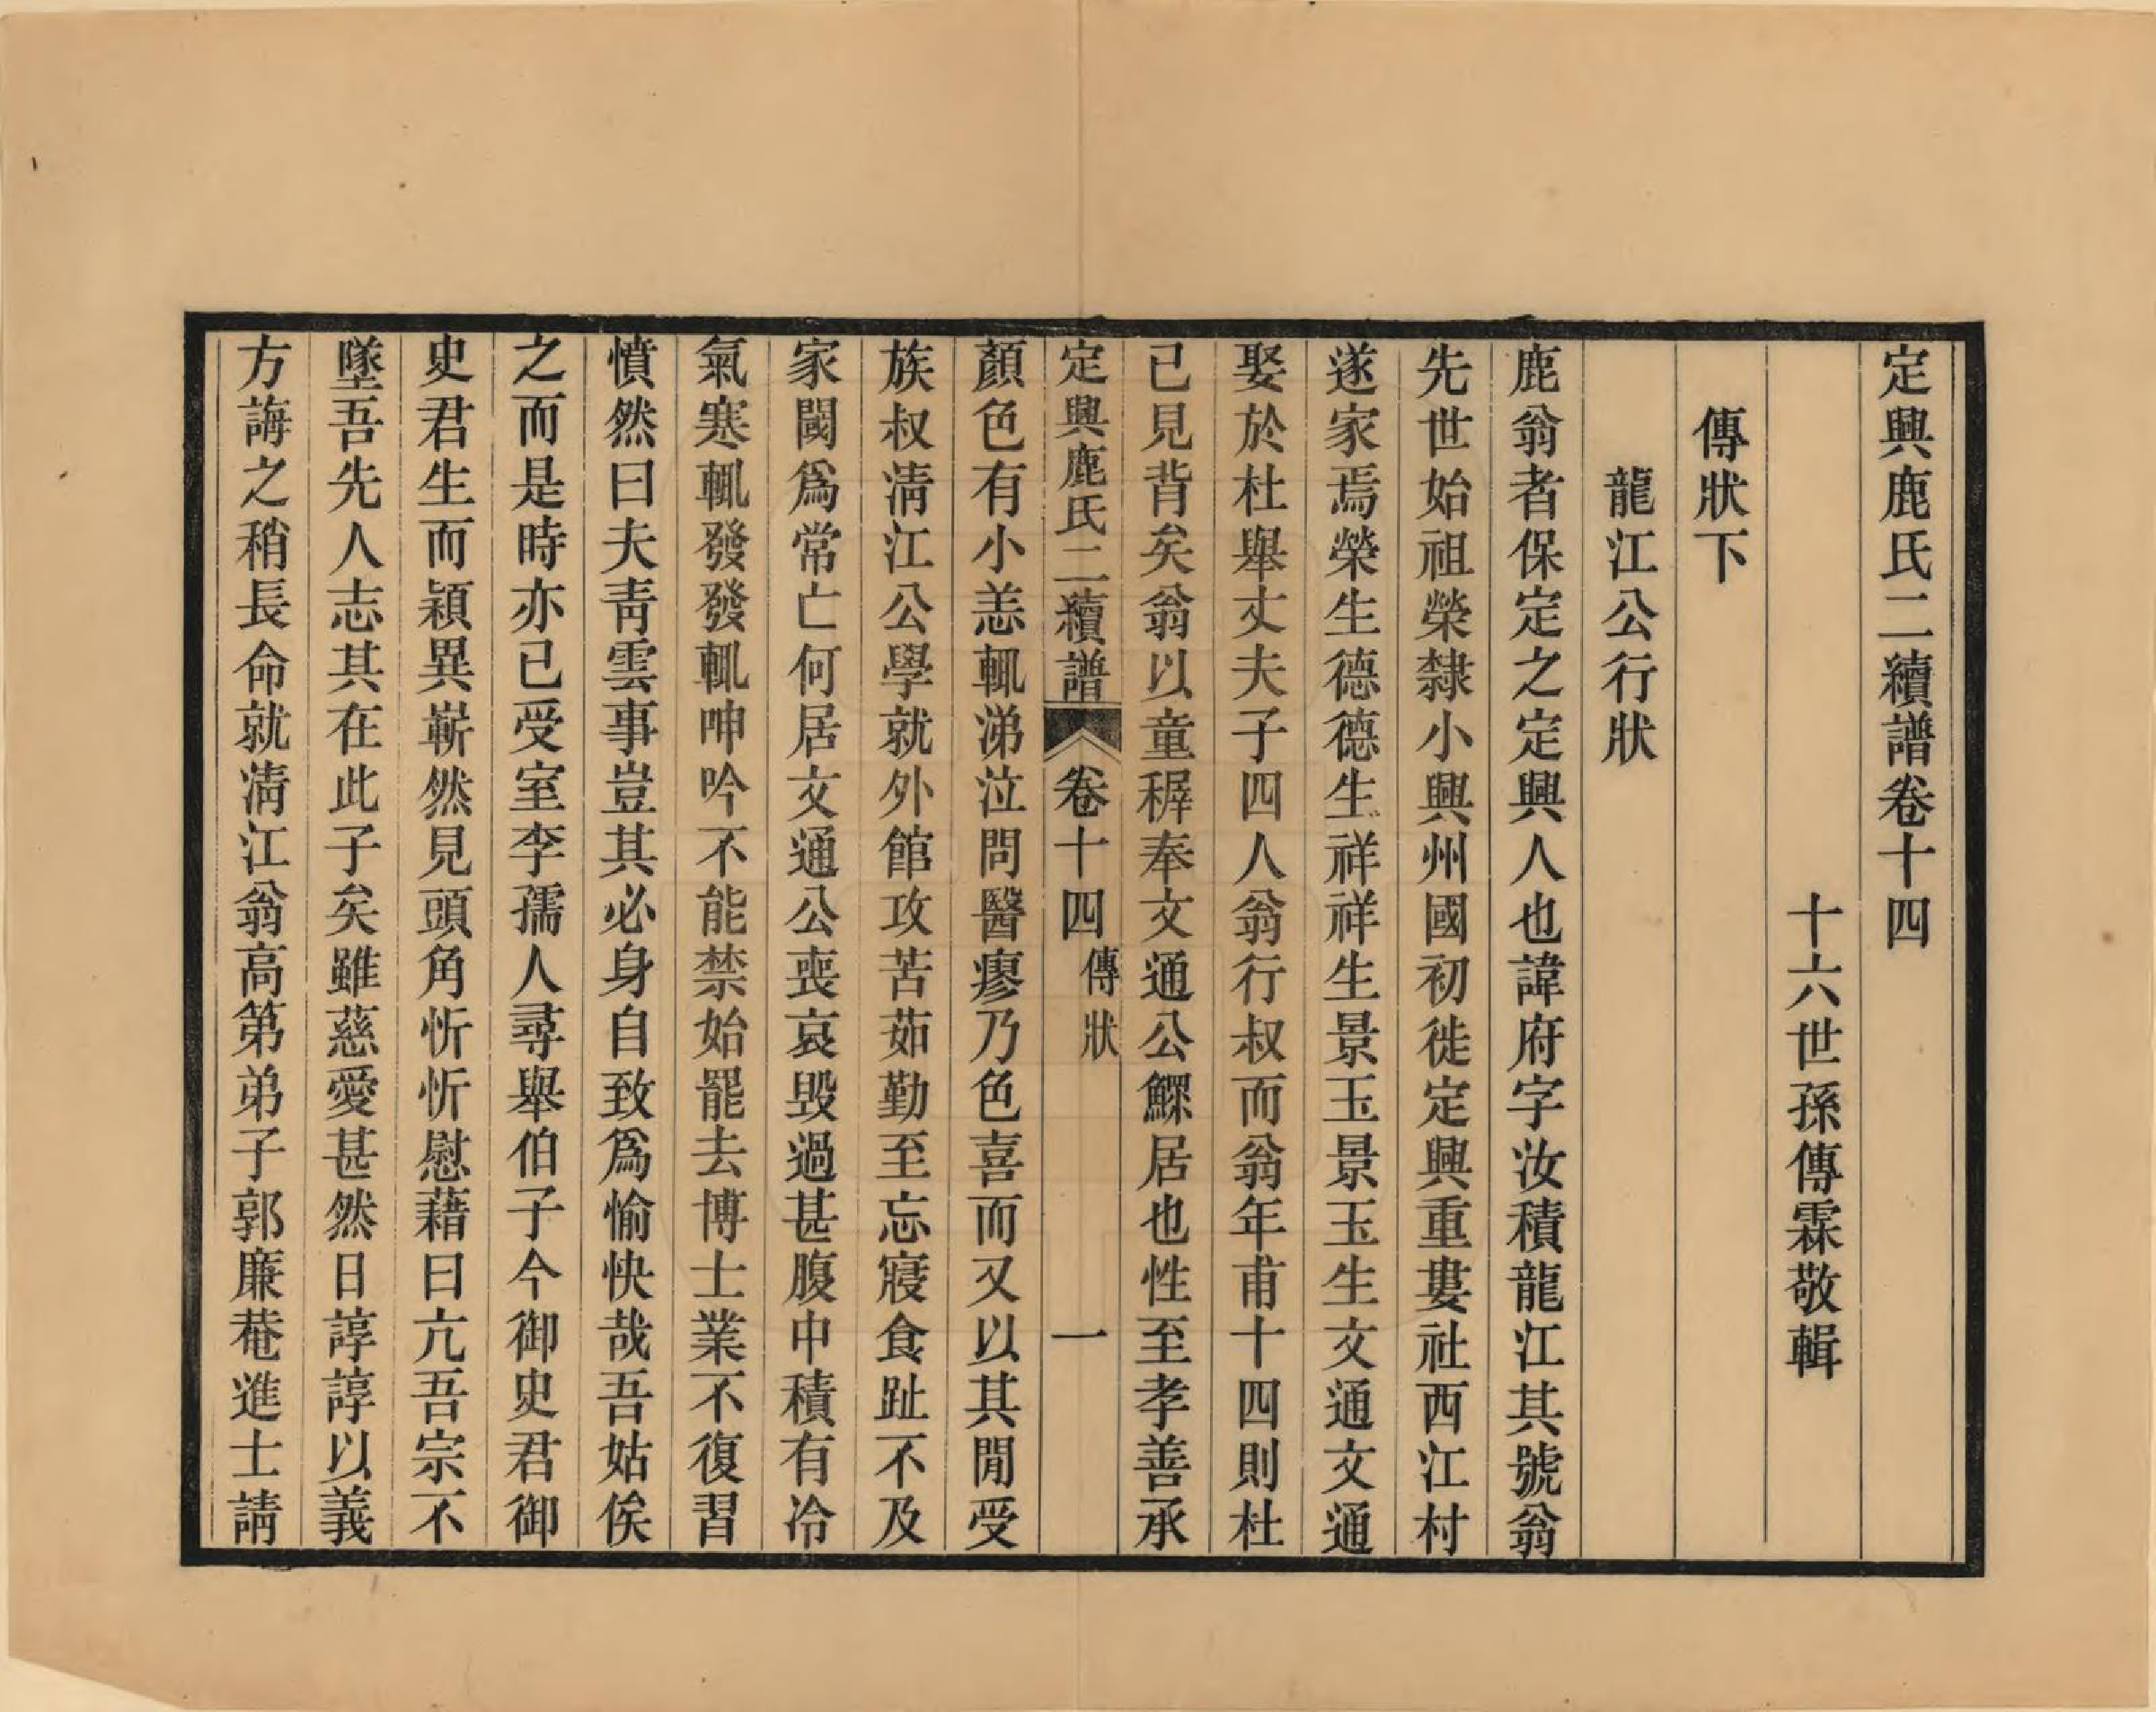 定興鹿氏二續譜卷十四
十六世孫傳霖敬輯
傳狀下
龍江公行狀
鹿翁者保定之定興人也諱府字汝積龍江其號翁
先世始祖榮隸小興州國初徙定興重婁社西江村
遂家焉榮生德德生祥祥生景玉景玉生文通文通
娶於杜舉丈夫子四人翁行叔而翁年甫十四則杜
已見背矣翁以童穉奉文通公鰥居也性至孝善承
定興鹿氏二續譜 卷十四 傳狀 一
顏色有小恙輒涕泣問醫瘳乃色喜而又以其閒受
族叔淸江公學就外館攻苦茹勤至忘寢食趾不及
家閾爲常亡何居文通公喪哀毀過甚腹中積有冷
氣寒輒發發輒呻吟不能禁始罷去博士業不復習
憤然曰夫靑雲事豈其必身自致爲愉快哉吾姑俟
之而是時亦已受室李孺人尋舉伯子今御史君御
史君生而穎異嶄然見頭角忻忻慰藉曰亢吾宗不
墜吾先人志其在此子矣雖慈愛甚然日諄諄以義
方誨之稍長命就淸江翁高第弟子郭廉菴進士請